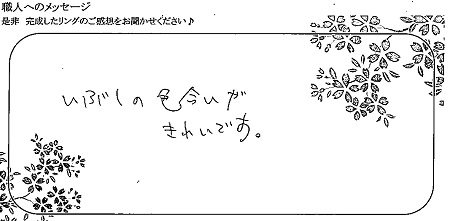 職人へのメッセージ
是非 完成したリングのご感想をお聞かせください♪
いぶしの色合いが
きれいです。